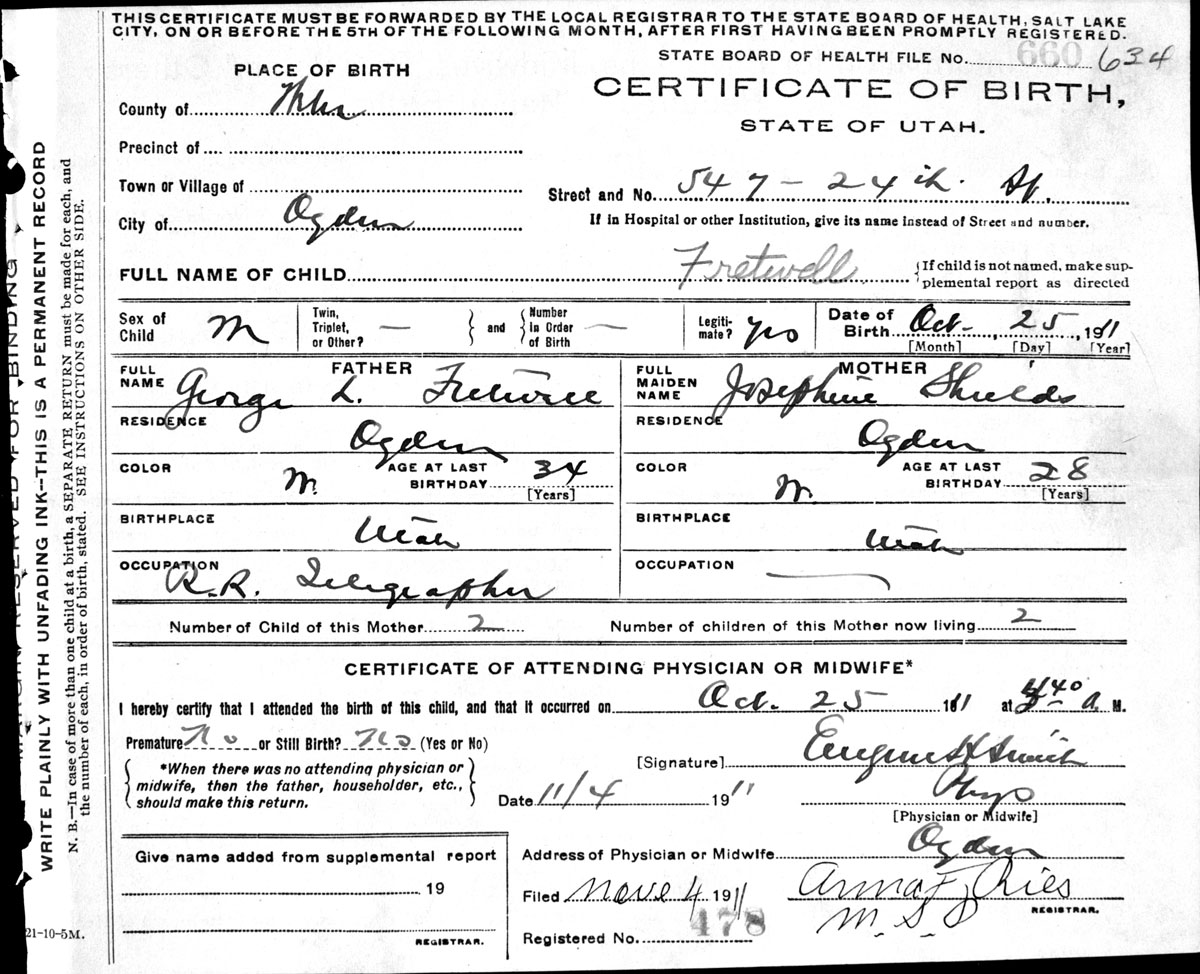 THIS CERTIFICATE MUST BE FORWARDED BY THE LOCAL REGISTRAR TO THE STATE BOARD OF HEALTH, SALT LAKE
CITY, ON OR BEFORE THE 5TH OF THE FOLLOWING MONTH, AFTER FIRST HAVING BEEN PROMPTLY REGISTERED.
STATE BOARD OF HEALTH FILE No. 660 634
PLACE OF BIRTH
CERTIFICATE OF BIRTH,
STATE OF UTAH.
County of
Precinct of
Town or Village of
Street and No. 547 - 24th St.
City of Ogden
If in Hospital or other Institution, give its name instead of Street and number.
FULL NAME OF CHILD Fretwell
{If child is not named, make supplemental report as directed
Sex of Child M
Twin, Triplet, or Other? —
and
Number in Order of Birth —
Legitimate? yes
Date of Birth Oct. 25, 1911
[Month] [Day] [Year]
FATHER
FULL NAME George L. Fretwell
RESIDENCE Ogden
COLOR W.
AGE AT LAST BIRTHDAY 34
[Years]
BIRTHPLACE Utah
OCCUPATION R.R. Telegrapher
MOTHER
FULL MAIDEN NAME Josephine Shields
RESIDENCE Ogden
COLOR W.
AGE AT LAST BIRTHDAY 28
[Years]
BIRTHPLACE Utah
OCCUPATION —
Number of Child of this Mother 2
Number of children of this Mother now living 2
CERTIFICATE OF ATTENDING PHYSICIAN OR MIDWIFE*
I hereby certify that I attended the birth of this child, and that it occurred on Oct. 25 1911 at 40 A. M.
Premature? No or Still Birth? No (Yes or No)
*When there was no attending physician or midwife, then the father, householder, etc., should make this return.
[Signature] Eugene H Smith
Date 11/4 1911
Phys
[Physician or Midwife]
Give name added from supplemental report
19
REGISTRAR.
Address of Physician or Midwife Ogden
Filed Nove 4 1911
Anna F. Ries
M. S. D
REGISTRAR.
Registered No. 478
21-10-5M.
MARGIN RESERVED FOR BINDING
WRITE PLAINLY WITH UNFADING INK--THIS IS A PERMANENT RECORD
N. B.—In case of more than one child at a birth, a SEPARATE RETURN must be made for each, and
the number of each, in order of birth, stated. SEE INSTRUCTIONS ON OTHER SIDE.